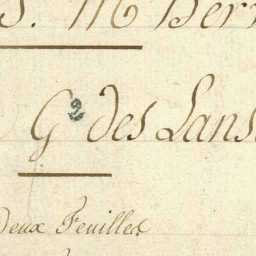 S. M Ber
G? des Lans
Deux Feuilles